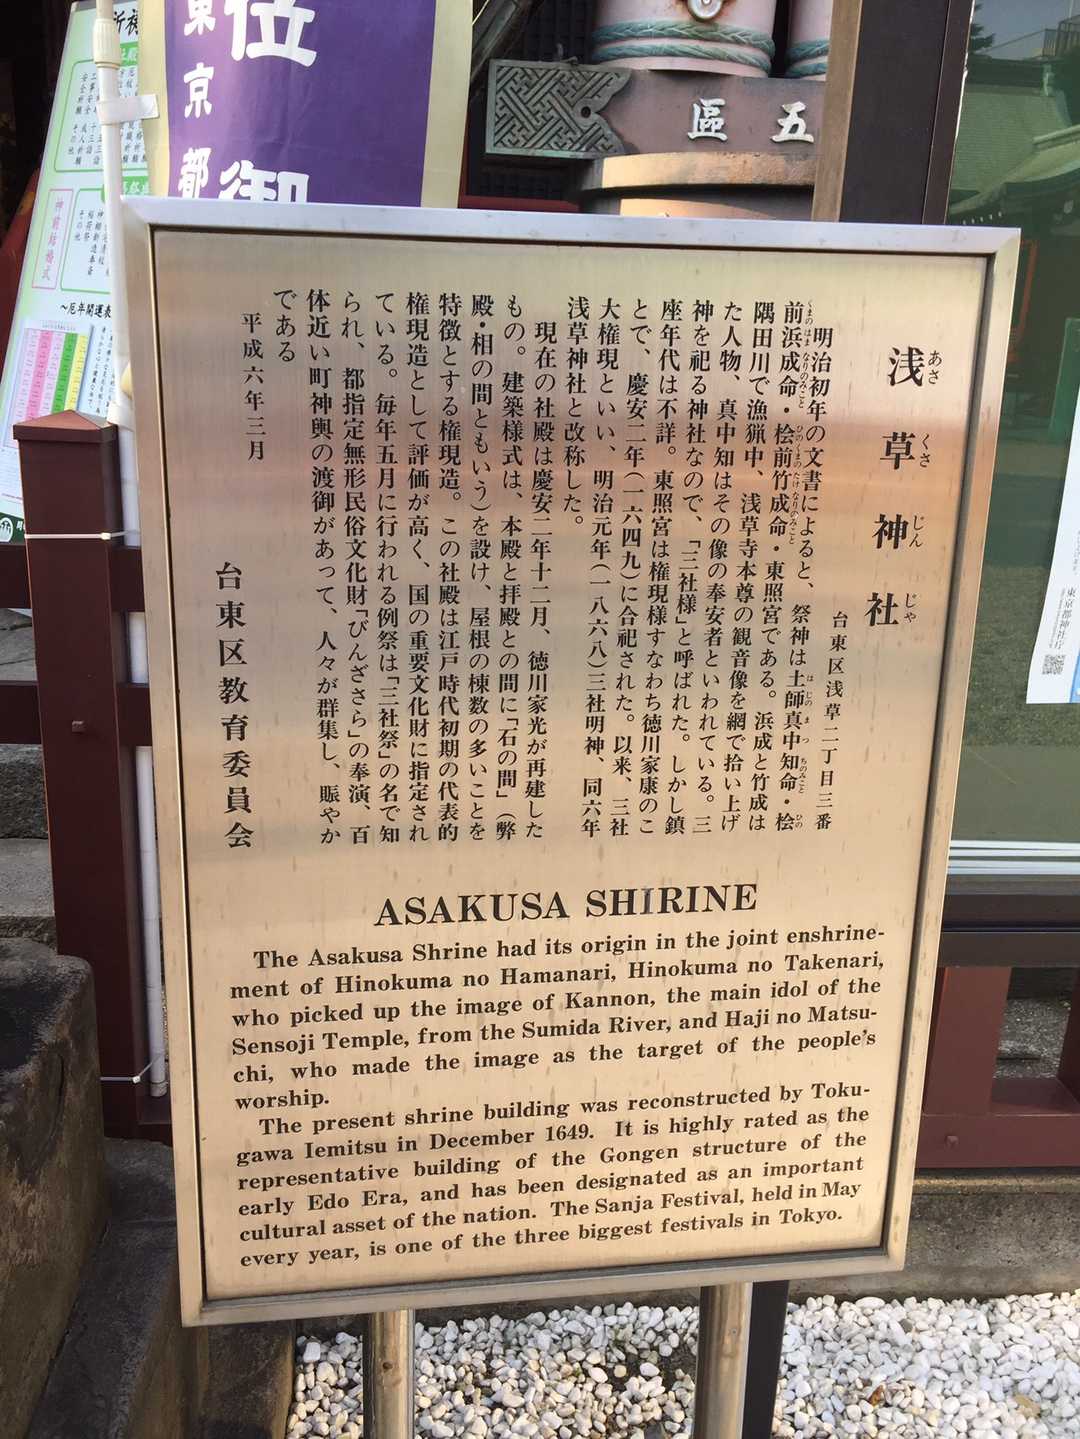 東京都
位
御
五區
安全祈願
その他
神前結婚式
その他
~厄年開運表
浅草神社
あさくさじんじゃ
台東区浅草二丁目三番
明治初年の文書によると、祭神は土師真中知命・桧
前浜成命・桧前竹成命・東照宮である。浜成と竹成は
隅田川で漁猟中、浅草寺本尊の観音像を網で拾い上げ
た人物、真中知はその像の奉安者といわれている。三
神を祀る神社なので、「三社様」と呼ばれた。しかし鎮
座年代は不詳。東照宮は権現様すなわち徳川家康のこ
とで、慶安二年(一六四九)に合祀された。以来、三社
大権現といい、明治元年(一八六八)三社明神、同六年
浅草神社と改称した。
現在の社殿は慶安二年十二月、徳川家光が再建した
もの。建築様式は、本殿と拝殿との間に「石の間」(弊
殿・相の間ともいう)を設け、屋根の棟数の多いことを
特徴とする権現造。この社殿は江戸時代初期の代表的
権現造として評価が高く、国の重要文化財に指定され
ている。毎年五月に行われる例祭は「三社祭」の名で知
られ、都指定無形民俗文化財「びんざさら」の奉演、百
体近い町神輿の渡御があって、人々が群集し、賑やか
である
平成六年三月
台東区教育委員会
ASAKUSA SHIRINE
The Asakusa Shrine had its origin in the joint enshrine-
ment of Hinokuma no Hamanari, Hinokuma no Takenari,
who picked up the image of Kannon, the main idol of the
Sensoji Temple, from the Sumida River, and Haji no Matsu-
chi, who made the image as the target of the people's
worship.
The present shrine building was reconstructed by Toku-
gawa Iemitsu in December 1649. It is highly rated as the
representative building of the Gongen structure of the
early Edo Era, and has been designated as an important
cultural asset of the nation. The Sanja Festival, held in May
every year, is one of the three biggest festivals in Tokyo.
東京都神社庁